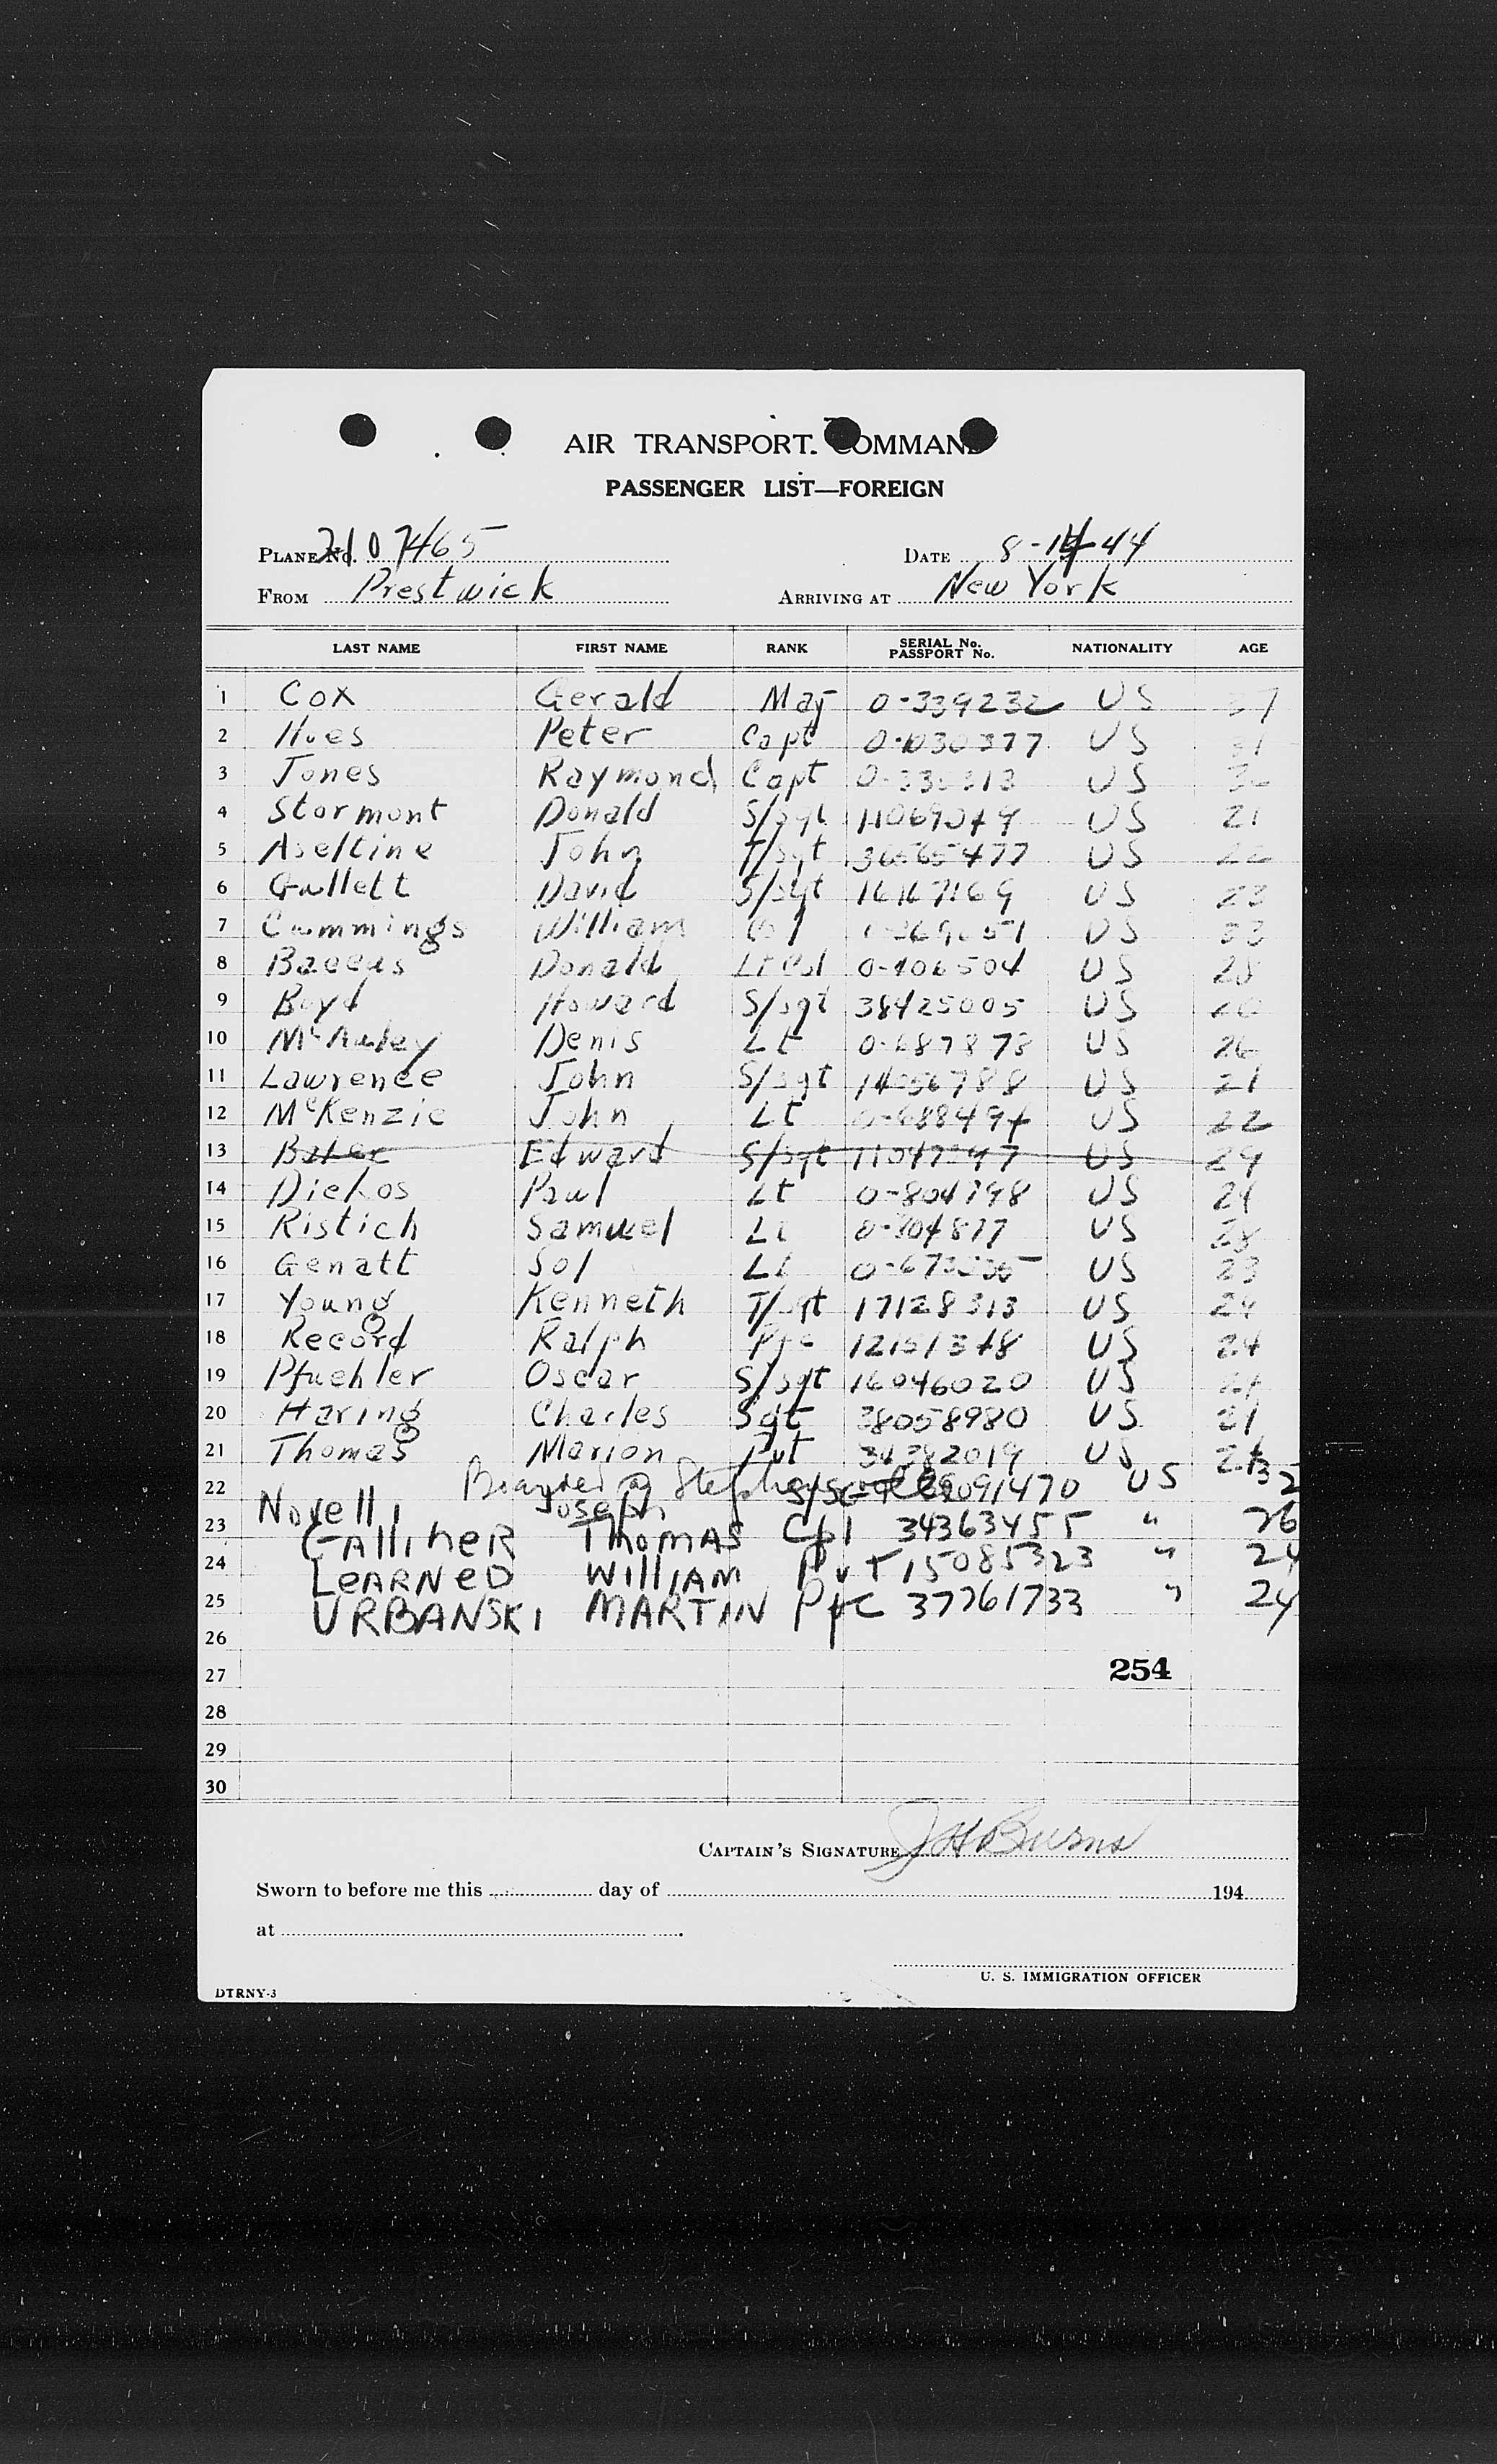 AIR TRANSPORT. COMMAND
PASSENGER LIST—FOREIGN
PLANE No. 2107465 DATE 8-14-44
FROM Prestwick ARRIVING AT New York
LAST NAME FIRST NAME RANK SERIAL No. PASSPORT No. NATIONALITY AGE
1 Cox Gerald Maj 0-339232 US 37
2 Peter Capt 0-1030377 US 31
3 Jones Raymond Capt US
4 Stormont Donald S/sgt US 21
5 Aseltine John T/sgt 36565477 US
6 Gullett David S/sgt 16167169 US 23
7 Cummings William Col US 33
8 Baccus Donald Lt Col 0-406504 US 28
9 Boyd Howard S/sgt 38425005 US 20
10 McAuley Denis Lt 0-687878 US 26
11 Lawrence John S/sgt 14056788 US 21
12 McKenzie John Lt 0-688494 US 22
13 Baker Edward S/sgt US 29
14 Diekos Paul Lt 0-804798 US 24
15 Ristich Samuel Lt 0-804877 US 28
16 Genatt Sol Lt US 23
17 Young Kenneth T/sgt 17128313 US 24
18 Record Ralph Pfc 12151348 US 24
19 Pfuehler Oscar S/sgt 16046020 US
20 Haring Charles Sgt 38058980 US 21
21 Thomas Marion Pvt 34382019 US
22 Stephen US 32
23 Novelli Joseph
GALLIHER THOMAS Cpl 34363455 " 26
24 LEARNED WILLIAM PvT 15085323 " 24
25 URBANSKI MARTIN Pfc 37761733 " 24
26
27 254
28
29
30
CAPTAIN'S SIGNATURE J H Burns
Sworn to before me this day of 194
at
U. S. IMMIGRATION OFFICER
DTRNY-3